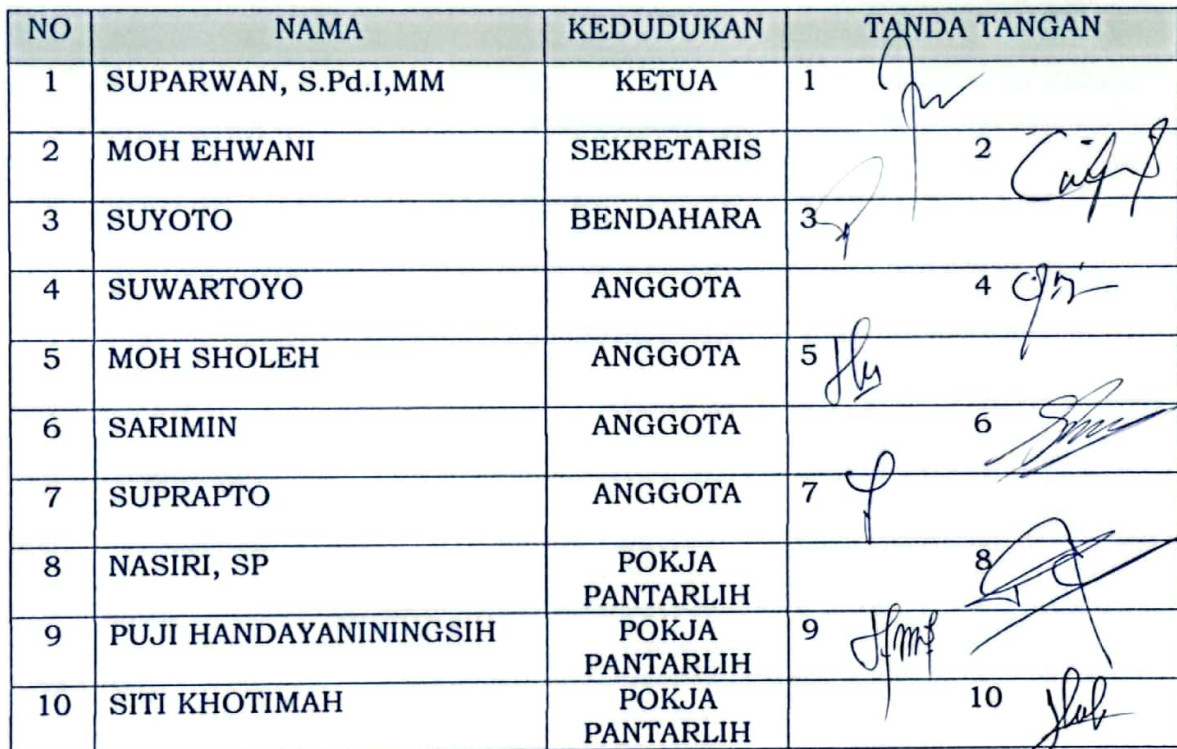 NO NAMA KEDUDUKAN TANDA TANGAN
1 SUPARWAN, S.Pd.I,MM KETUA 1
2 MOH EHWANI SEKRETARIS 2
3 SUYOTO BENDAHARA 3
4 SUWARTOYO ANGGOTA 4
5 MOH SHOLEH ANGGOTA 5
6 SARIMIN ANGGOTA 6
7 SUPRAPTO ANGGOTA 7
8 NASIRI, SP POKJA 8
PANTARLIH
9 PUJI HANDAYANININGSIH POKJA 9
PANTARLIH
10 SITI KHOTIMAH POKJA 10
PANTARLIH